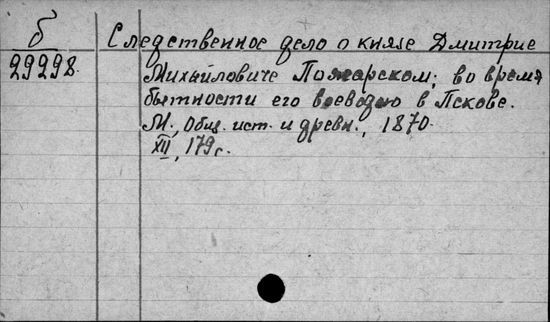 б
29298.
Следственное дело о князе Дмитрие
Михайловиче Пожарском, во время
бытности его воеводою в Пскове.
М., Общ. ист. и древн., 1870.
XII, 179 с.